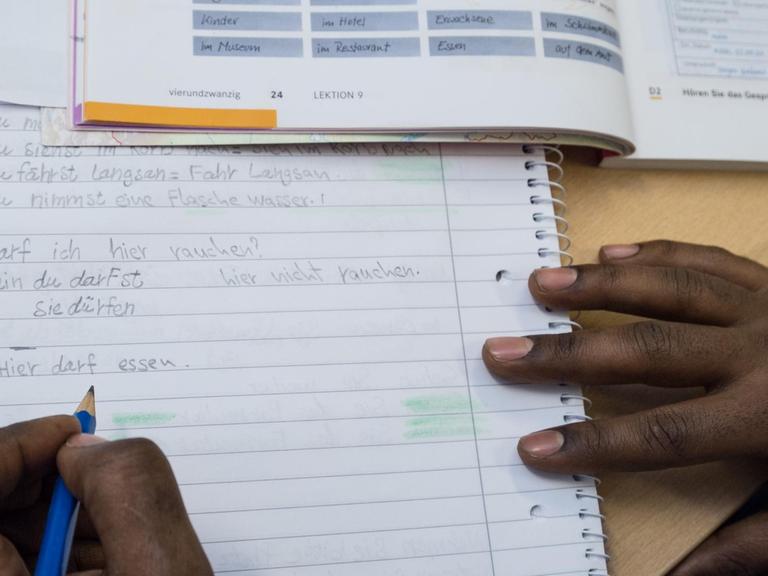 Kinder im Hotel Erwachsene im Schwimmbad
im Museum im Restaurant Essen auf dem Amt
vierundzwanzig 24 LEKTION 9
D2 Hören Sie das Gesp
u siehst im Korb nach =
u fährst langsan = Fahr Langsan.
u nimmst eine Flasche wasser.!
arf ich hier rauchen?
ein du darfst hier nicht rauchen.
Sie dürfen
Hier darf essen.